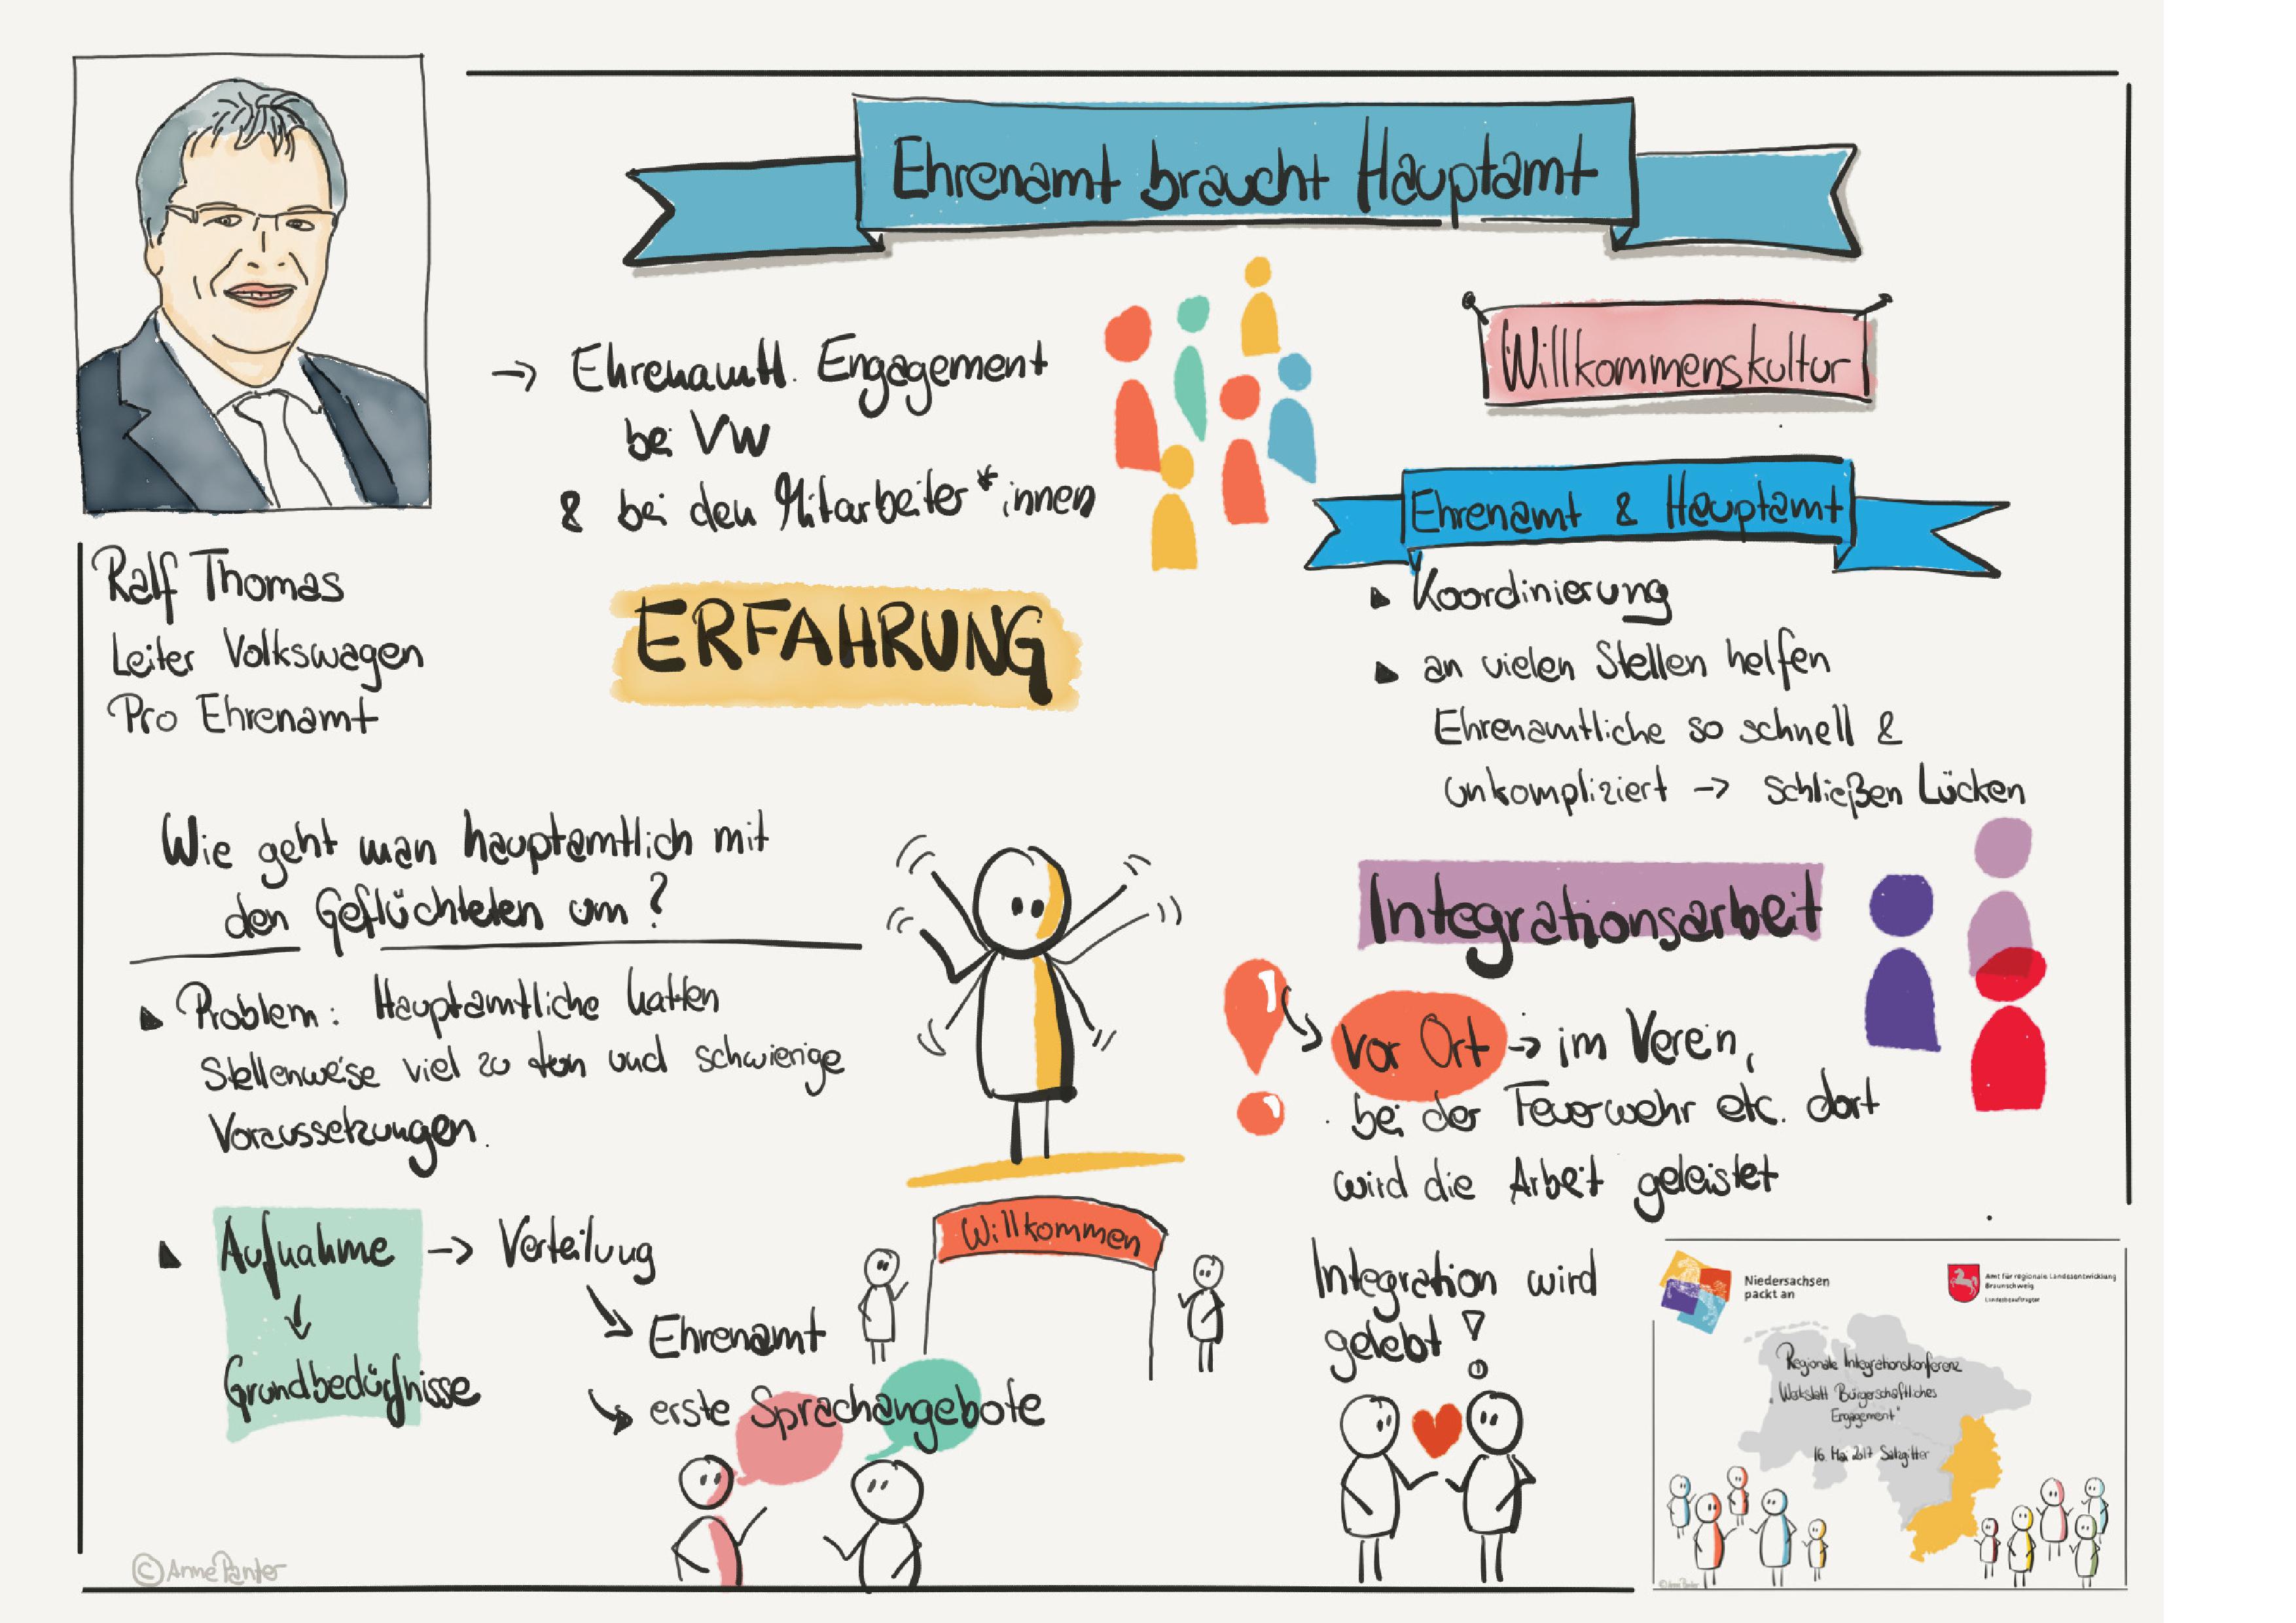 Ehrenamt braucht Hauptamt
Ralf Thomas
Leiter Volkswagen
Pro Ehrenamt
→ Ehrenamtl. Engagement
bei VW
& bei den Mitarbeiter*innen
ERFAHRUNG
Wie geht man hauptamtlich mit
den Geflüchteten um?
Problem: Hauptamtliche hatten
stellenweise viel zu tun und schwierige
Voraussetzungen.
Aufnahme → Verteilung
↓
Grundbedürfnisse
Ehrenamt
erste Sprachangebote
Willkommen
© Anne Panter
Willkommenskultur
Ehrenamt & Hauptamt
Koordinierung
an vielen Stellen helfen
Ehrenamtliche so schnell &
unkompliziert → schließen Lücken
Integrationsarbeit
vor Ort → im Verein,
bei der Feuerwehr etc. dort
wird die Arbeit geleistet
Integration wird
gelebt!
Niedersachsen
packt an
Amt für regionale Landesentwicklung
Braunschweig
Landesbeauftragter
Regionale Integrationskonferenz
"Werkstatt Bürgerschaftliches
Engagement"
16. Mai 2017 Salzgitter
© Anne Panter